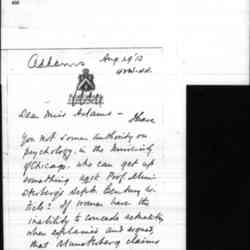 Adams Aug 29 '13
Dear Miss Adams — Have
You not some authority on
psychology, in the University
of Chicago, who can get up
something agst Prof. Mün-
sterberg's Sept. Century
: If women have the
inability to concede actuality
when explained and argued,
that Munsterberg claims